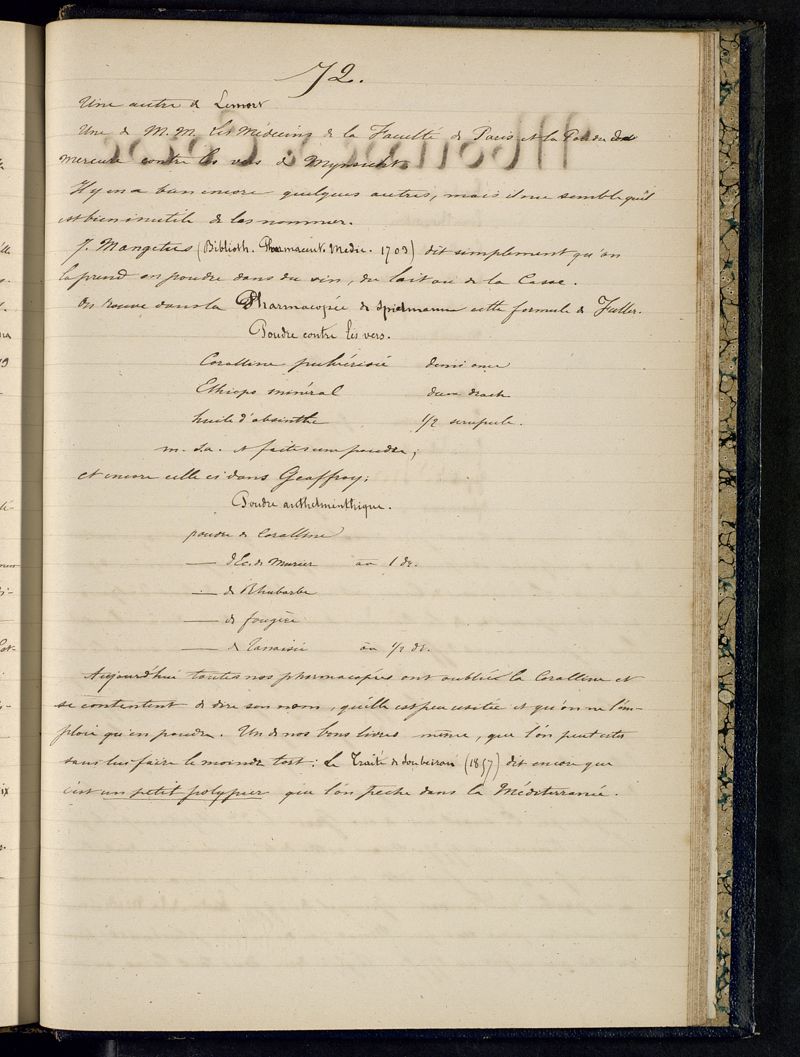 72.
Une autre de Lemort
Une de M. M. les Médecins de la Faculté de Paris et la Poudre de
mercure contre les vers de Mynsicht.
Il y en a bien encore quelques autres, mais il me semble qu'il
est bien inutile de les nommer.
J. Mangetus (Biblioth. Pharmaceut. Medic. 1703) dit simplement qu'on
la prend en poudre dans du vin, du lait ou de la Casse.
On trouve dans la Pharmacopée de Spielmann cette formule de Fuller.
Poudre contre les vers.
Coralline pulvérisée demi once
Ethiops minéral deux drach
huile d'absinthe 1/2 scrupule.
m. s.a. et faites une poudre;
et encore celle ci dans Geoffroy:
Poudre anthelminthique.
poudre de Coralline
— d'Ec. de Murier aa 1 dr.
— de Rhubarbe
— de fougère
— de Tanaisie aa 1/2 dr.
Aujourd'hui toutes nos pharmacopées ont oublié la Coralline et
se contentent de dire son nom, qu'elle est peu usitée et qu'on ne l'em-
ploie qu'en poudre. Un de nos bons livres même, que l'on peut citer
sans lui faire le moindre tort: le Traité de Soubeiran (1857) dit encore que
c'est un petit polypier que l'on pêche dans la Méditerranée.